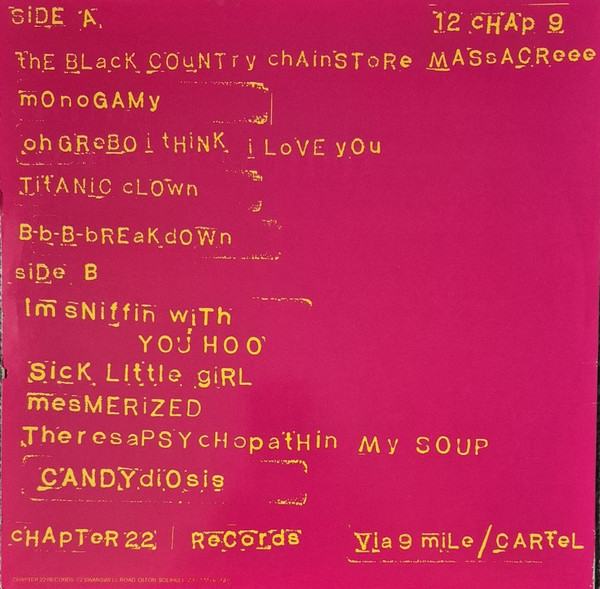 SiDE A
12 cHAp 9
ThE BLacK COuNTry chAinSToRe MASsACReee
mOnoGAMy
oh GReBO i tHiNK i LoVE yOu
TitANiC cLOwn
B-b-B-bREaKdOWn
siDe B
Im sNiffin wiTh
YOU HOO
SicK Little giRL
mesMERiZED
TheresaPSYcHopatHin My SOUP
CANDYdiOsis
cHApTeR 22 | ReCords
Via 9 miLe/CARTeL